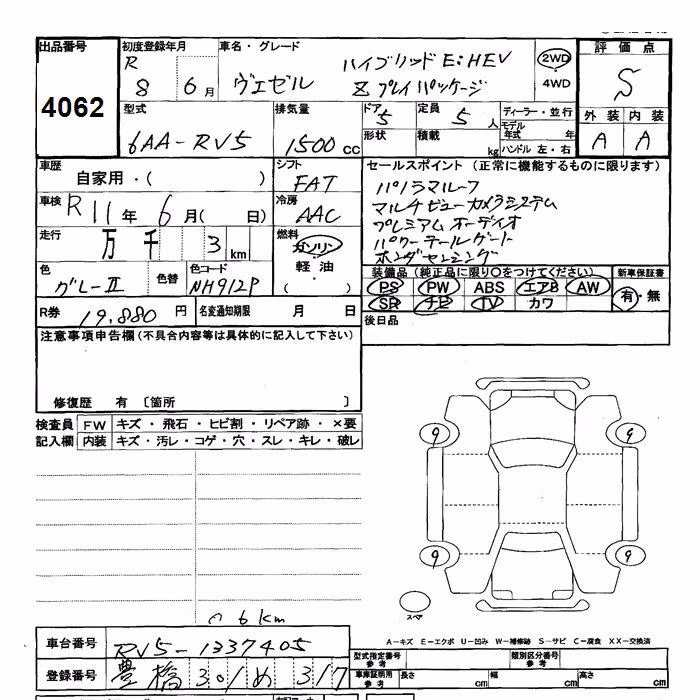 出品番号 初度登録年月 車名・グレード 評価点
4062 R 8 6月 ヴェゼル ハイブリッド E:HEV 2WD S
Z プレイパッケージ 4WD
型式 排気量 ドア 5 定員 5人 ディーラー・並行 外装 内装
6AA-RV5 1500cc 形状 積載 kg モデル年式 年 A A
ハンドル 左・右
車歴 シフト セールスポイント (正常に機能するものに限ります)
自家用・( ) FAT パノラマルーフ
車検 R11年 6月( 日) 冷房 AAC マルチビューカメラシステム
プレミアムオーディオ
走行 万 千 3 km 燃料 ガソリン パワーテールゲート
軽油・ ホンダセンシング
( )
色 グレーII 色替 色コード NH912P 装備品 (純正品に限り○をつけてください) 新車保証書
PS PW ABS エアB AW 有・無
SR ナビ TV カワ
R券 19,880円 名変通知期限 月 日 後日品
注意事項申告欄 (不具合内容等は具体的に記入して下さい)
修復歴 有 〔箇所 〕
検査員 FW キズ・飛石・ヒビ割・リペア跡・×要
記入欄 内装 キズ・汚レ・コゲ・穴・スレ・キレ・破レ
9 9
9 9
スペア
6km
A-キズ E-エクボ U-凹み W-補修跡 S-サビ C-腐食 XX-交換済
車台番号 RV5-1337405 型式指定番号 参考 類別区分番号 参考
登録番号 豊橋 301 め 317 車庫証明用 参考 長さ cm 幅 cm 高さ cm